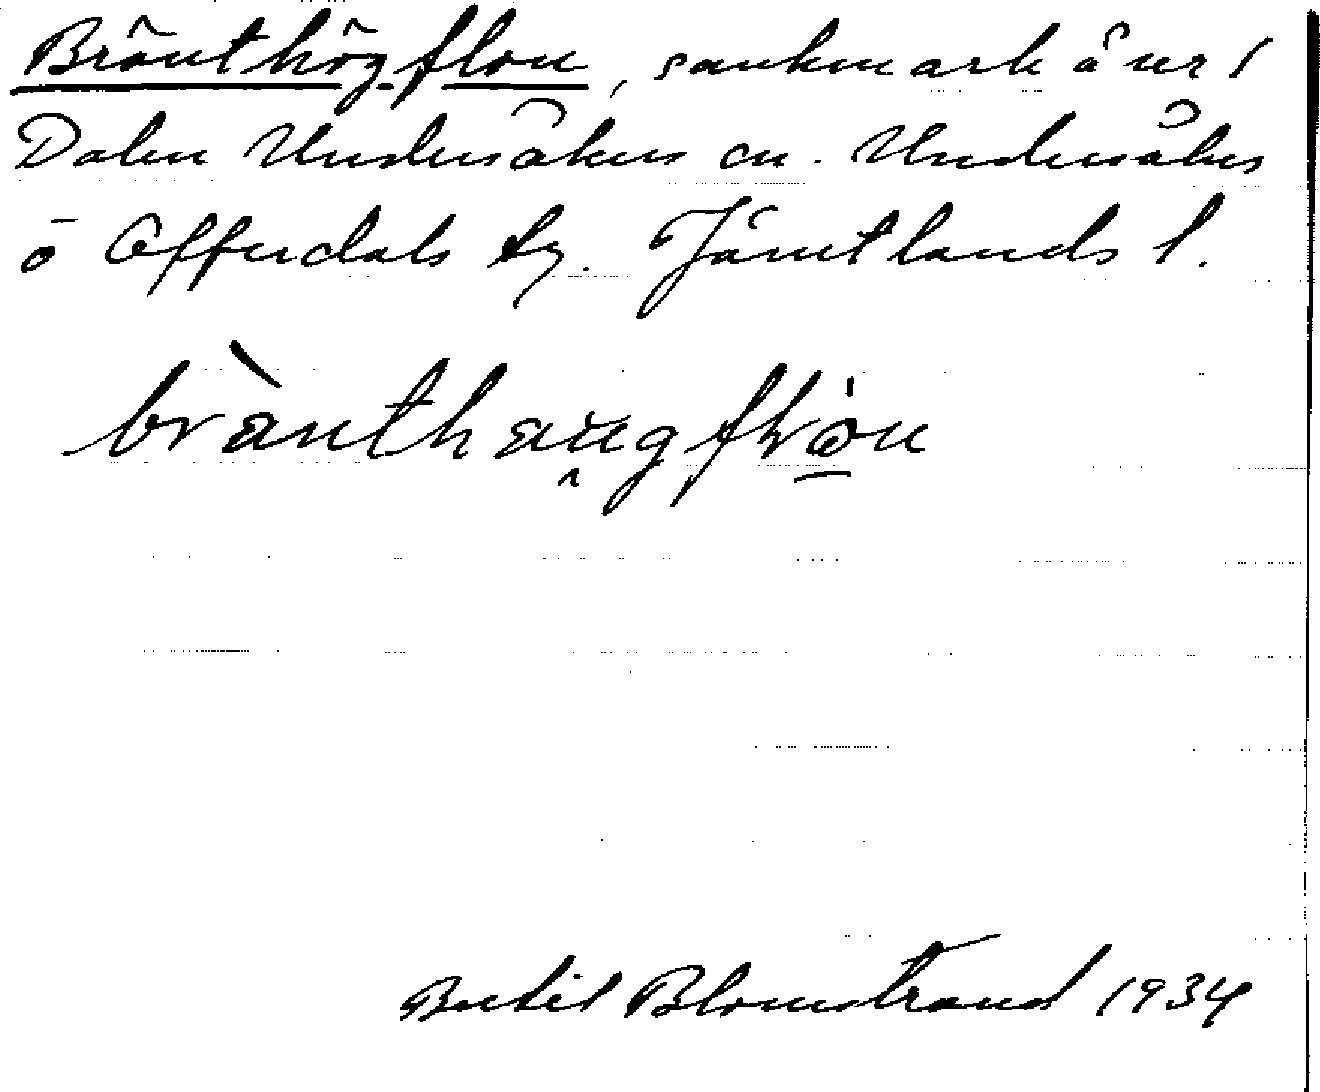 Bränthögflon, sankmark å nr 1
Dalen Undersåkers sn. Undersåkers
o Offerdals tg. Jämtlands l.
brànthau̯gfɫòn
Bertil Blomstrand 1934